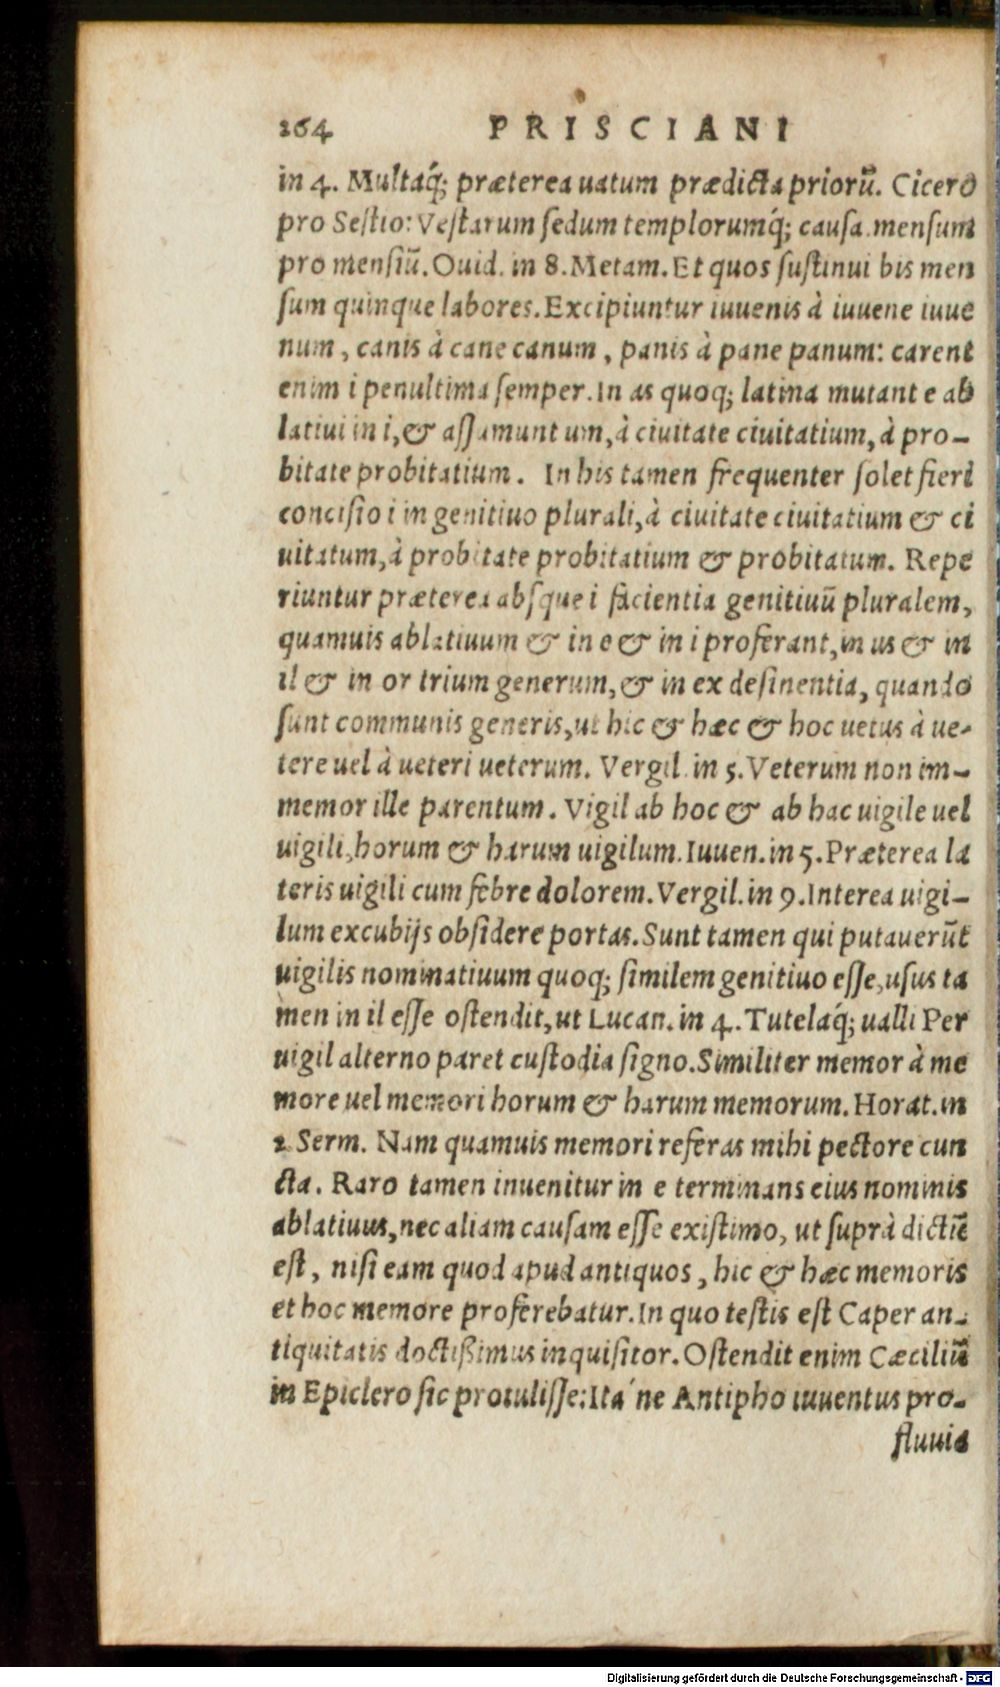 264 PRISCIANI
in 4. Multaq́; præterea uatum prædicta priorū. Cicero
pro Sestio: Vestarum sedum templorumq́; causa. mensum
pro mensiū. Ouid. in 8. Metam. Et quos sustinui bis men
sum quinque labores. Excipiuntur iuuenis à iuuene iuue
num, canis à cane canum, panis à pane panum: carent
enim i penultima semper. In as quoq; latina mutant e ab
latiui in i, & assumunt um, à ciuitate ciuitatium, à pro-
bitate probitatium. In his tamen frequenter solet fieri
concisio i in genitiuo plurali, à ciuitate ciuitatium & ci
uitatum, à probitate probitatium & probitatum. Repe
riuntur præterea absque i facientia genitiuū pluralem,
quamuis ablatiuum & in e & in i proferant, in us & in
il & in or trium generum, & in ex desinentia, quando
sunt communis generis, ut hic & hæc & hoc uetus à ue-
tere uel à ueteri ueterum. Vergil. in 5. Veterum non im-
memor ille parentum. Vigil ab hoc & ab hac uigile uel
uigili, horum & harum uigilum. Iuuen. in 5. Præterea la
teris uigili cum febre dolorem. Vergil. in 9. Interea uigi-
lum excubijs obsidere portas. Sunt tamen qui putauerūt
uigilis nominatiuum quoq; similem genitiuo esse, usus ta
men in il esse ostendit, ut Lucan. in 4. Tutelaq́; ualli Per
uigil alterno paret custodia signo. Similiter memor à me
more uel memori horum & harum memorum. Horat. in
2 Serm. Nam quamuis memori referas mihi pectore cun
cta. Raro tamen inuenitur in e terminans eius nominis
ablatiuus, nec aliam causam esse existimo, ut suprà dictū
est, nisi eam quod apud antiquos, hic & hæc memoris
et hoc memore proferebatur. In quo testis est Caper an-
tiquitatis doctißimus inquisitor. Ostendit enim Cæciliū
in Epiclero sic protulisse: Ita´ne Antipho iuuentus pro-
fluuia
Digitalisierung gefördert durch die Deutsche Forschungsgemeinschaft - DFG